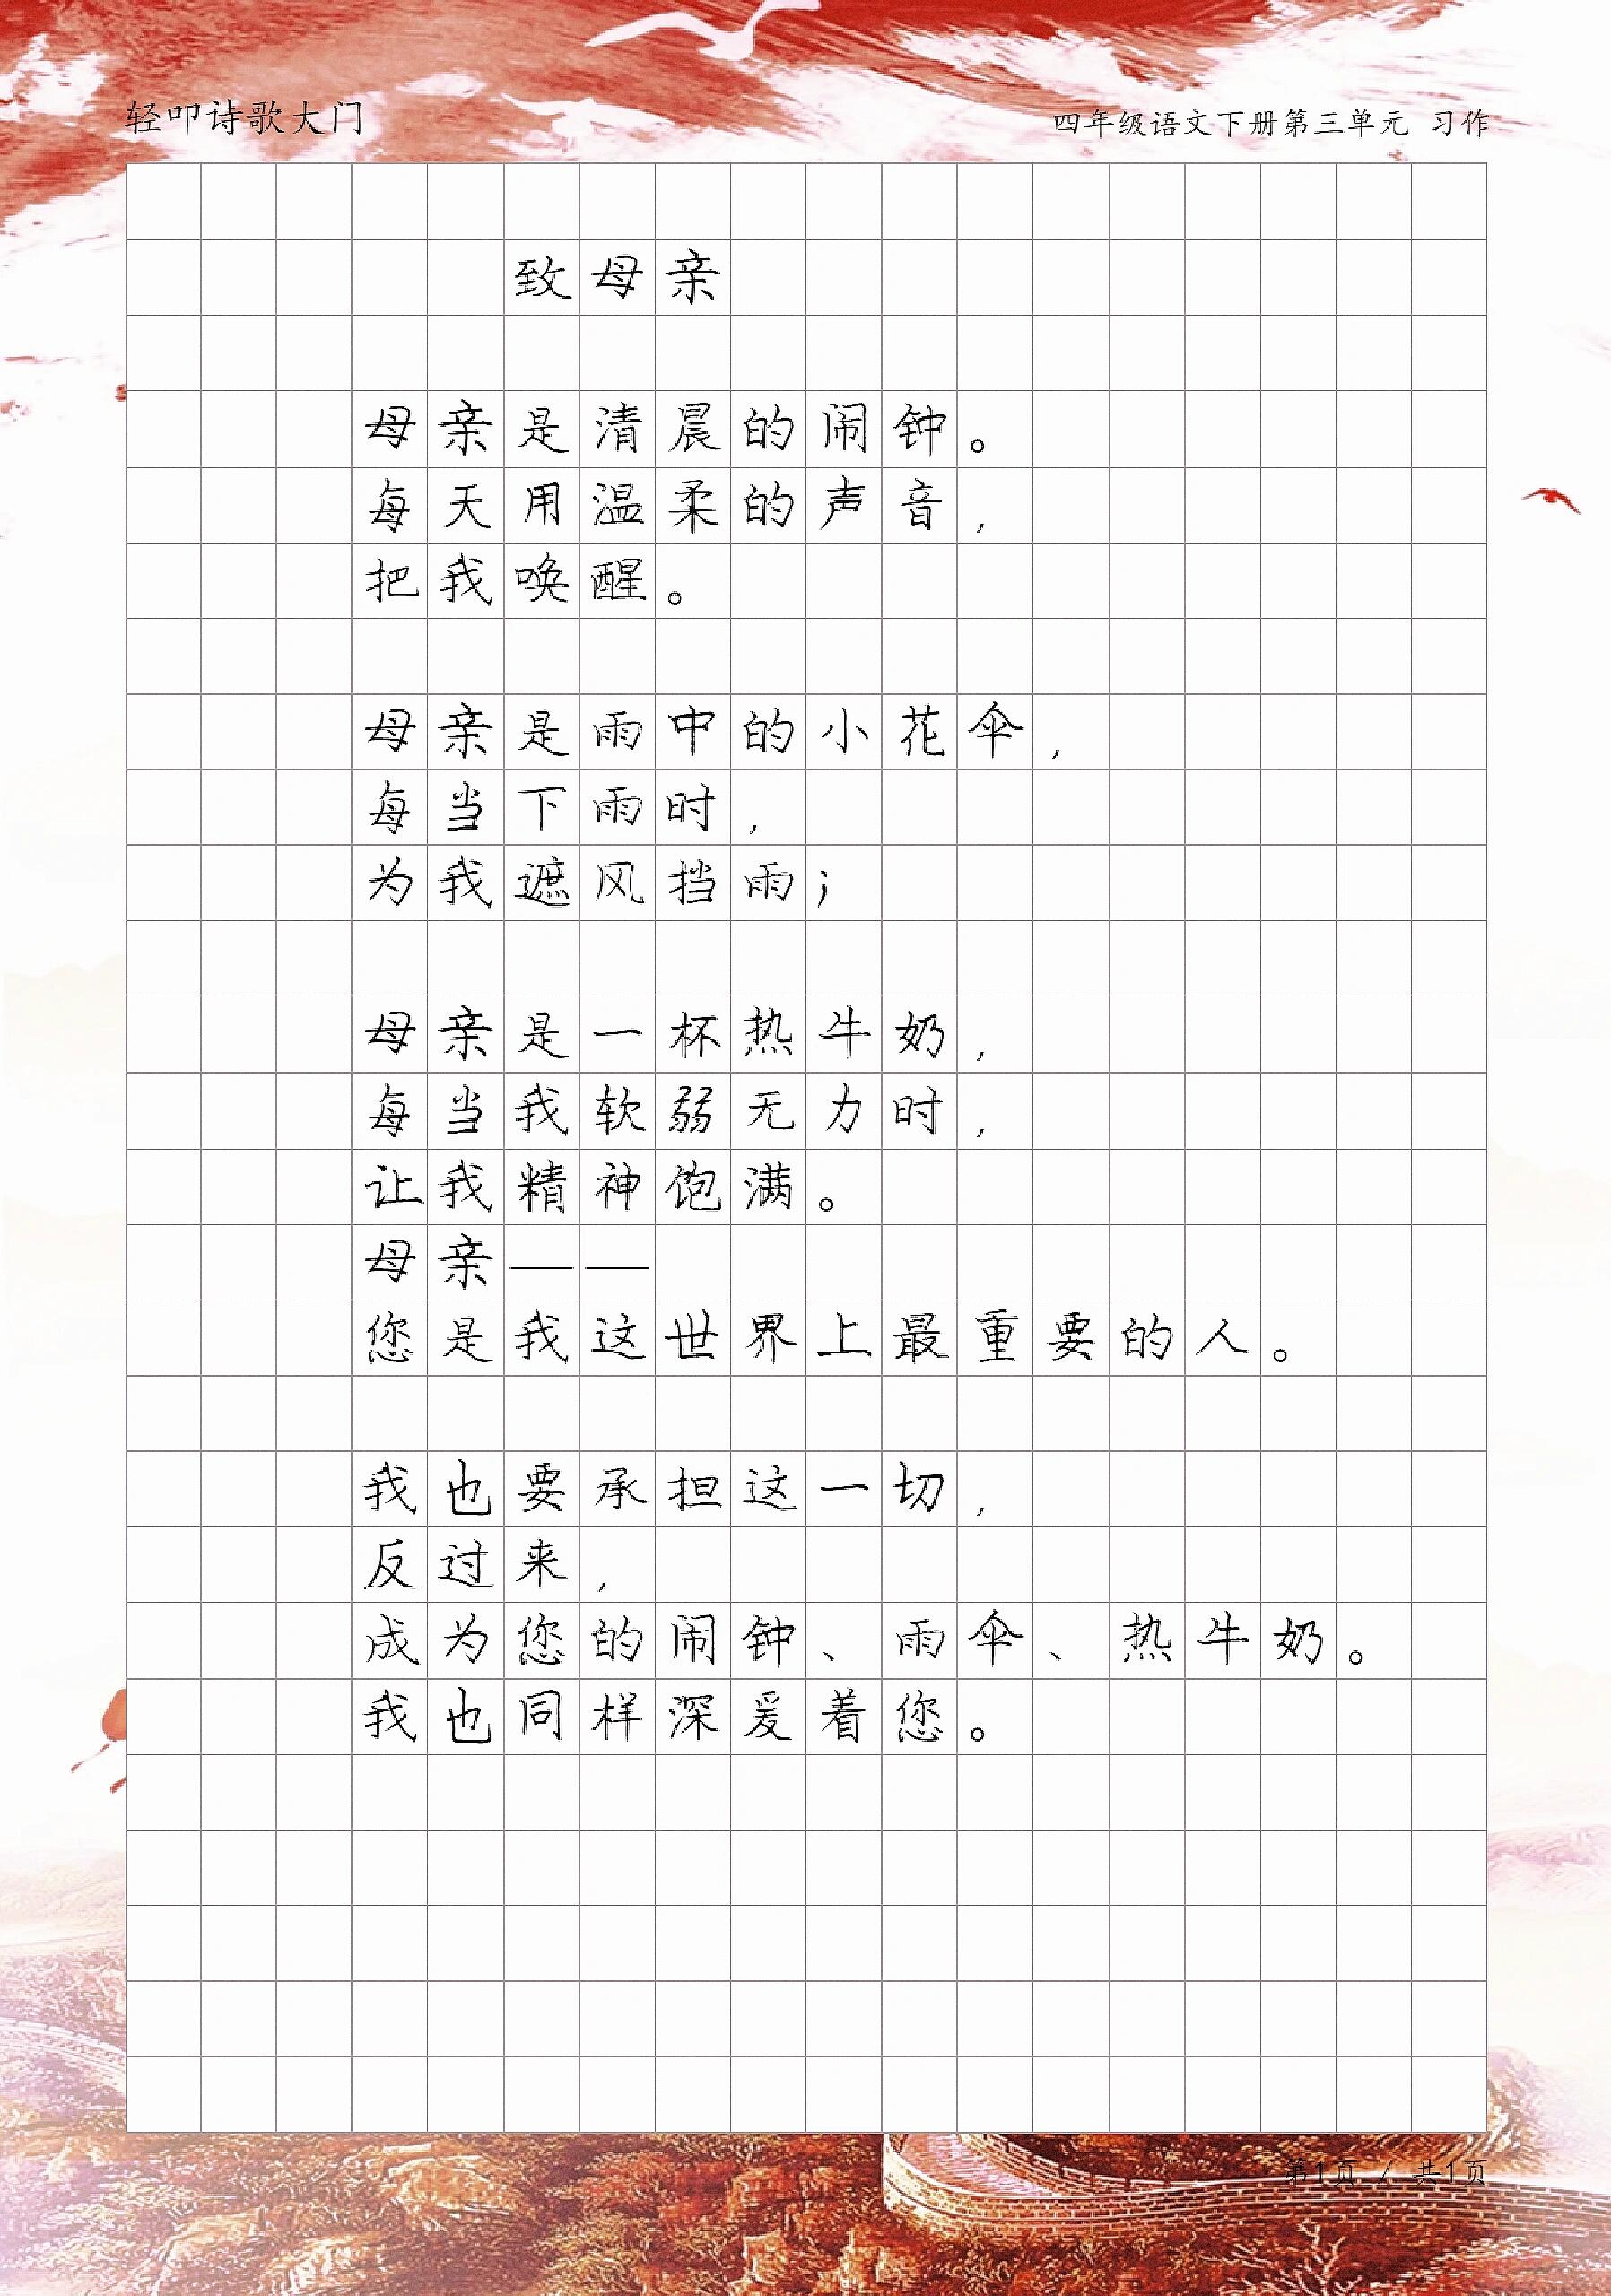 轻叩诗歌大门
四年级语文下册第三单元 习作
致母亲
母亲是清晨的闹钟。
每天用温柔的声音，
把我唤醒。
母亲是雨中的小花伞，
每当下雨时，
为我遮风挡雨；
母亲是一杯热牛奶，
每当我软弱无力时，
让我精神饱满。
母亲——
您是我这世界上最重要的人。
我也要承担这一切，
反过来，
成为您的闹钟、雨伞、热牛奶。
我也同样深爱着您。
第1页 / 共1页